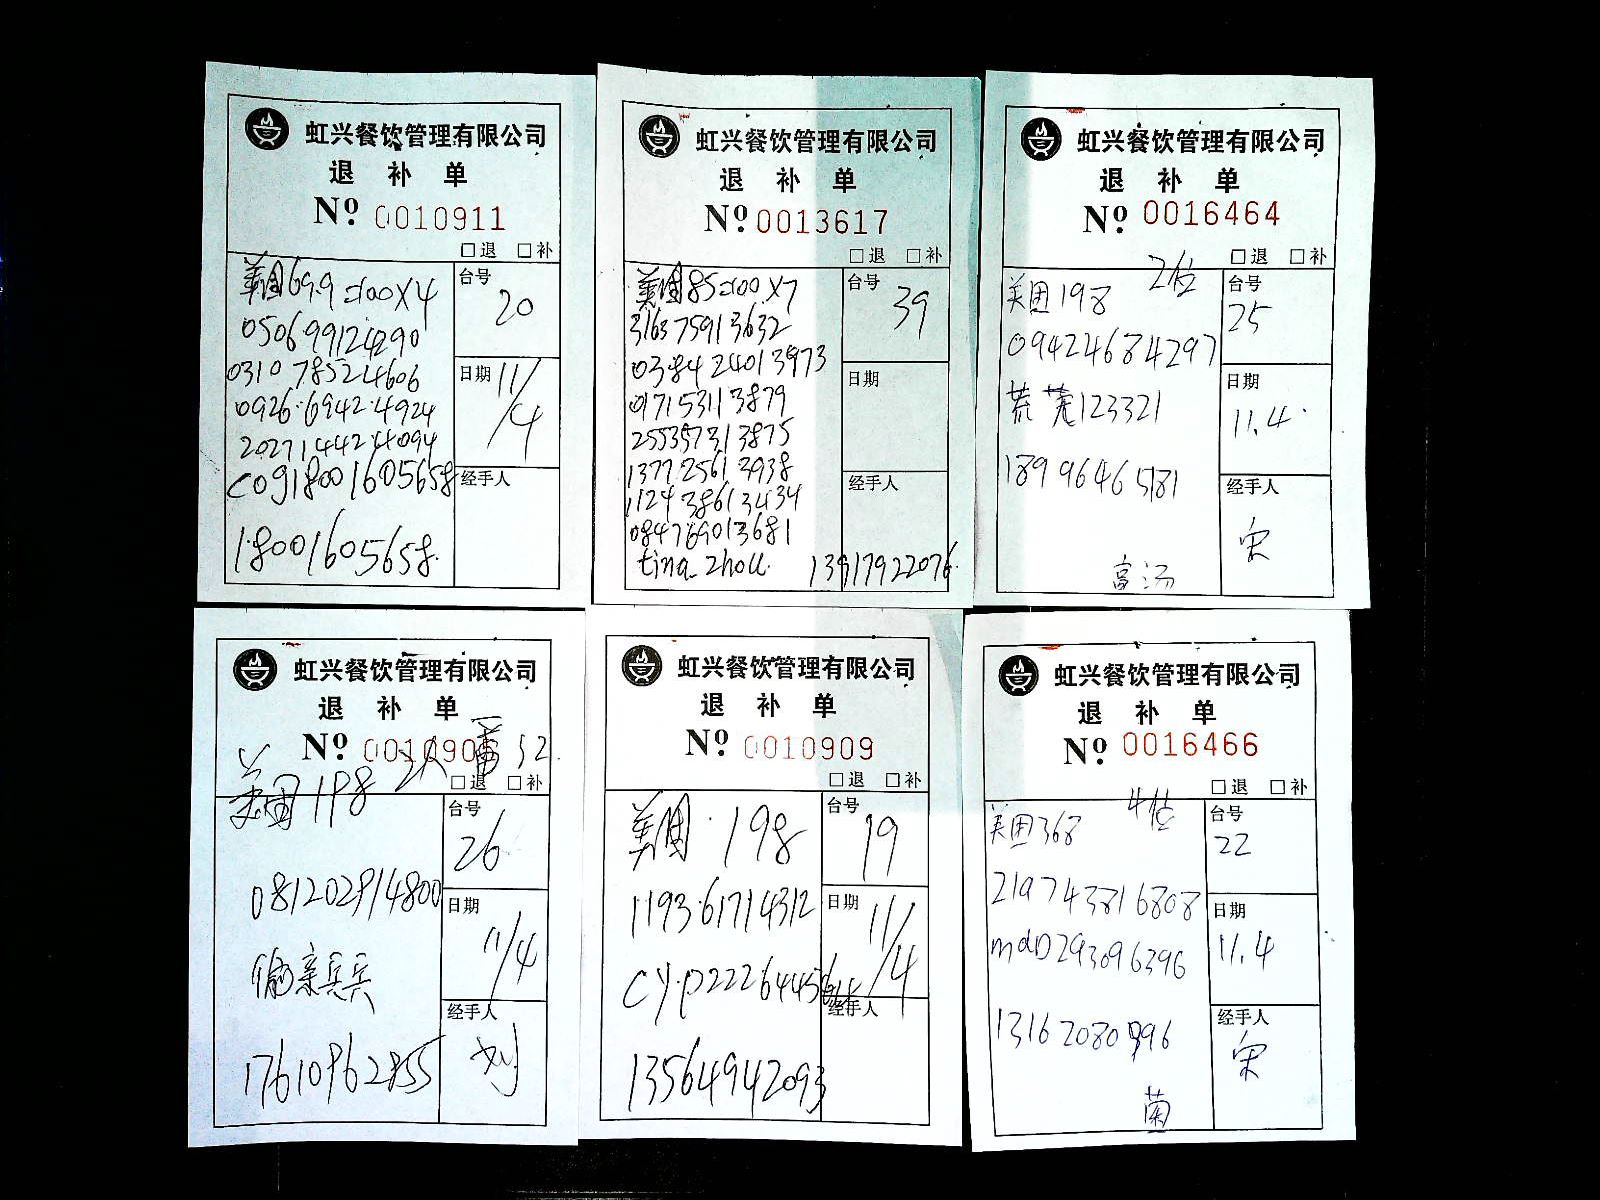 虹兴餐饮管理有限公司
退 补 单
Nº 0010911
□退 □补
美团69.9=100X4
050699124290
0310 78524606
0926.6942.4924
202714424094
C0918001605658
18001605658
台号
20
日期 11/4
经手人
虹兴餐饮管理有限公司
退 补 单
Nº 0013617
□退 □补
美团85=100X7
316375913632
038424013973
017153113879
255357313875
137725613938
112438613434
084769013681
tina_zhou. 13917922076
台号
39
日期
经手人
虹兴餐饮管理有限公司
退 补 单
Nº 0016464
□退 □补
2位
美团198
094224684297
荒芜123321
18996465181
富汤
台号
25
日期
11.4
经手人
宋
虹兴餐饮管理有限公司
退 补 单
Nº 001090
□退 □补
美团198 2人 52
081202914800
亲兵兵
17610962855
台号
26
日期
11/4
经手人
刘
虹兴餐饮管理有限公司
退 补 单
Nº 0010909
□退 □补
美团.198
1193.61714312
13564942093
台号
19
日期 11/4
经手人
虹兴餐饮管理有限公司
退 补 单
Nº 0016466
□退 □补
4位
美团368
219743816808
mdD293096396
13162080996
菌
台号
22
日期
11.4
经手人
宋